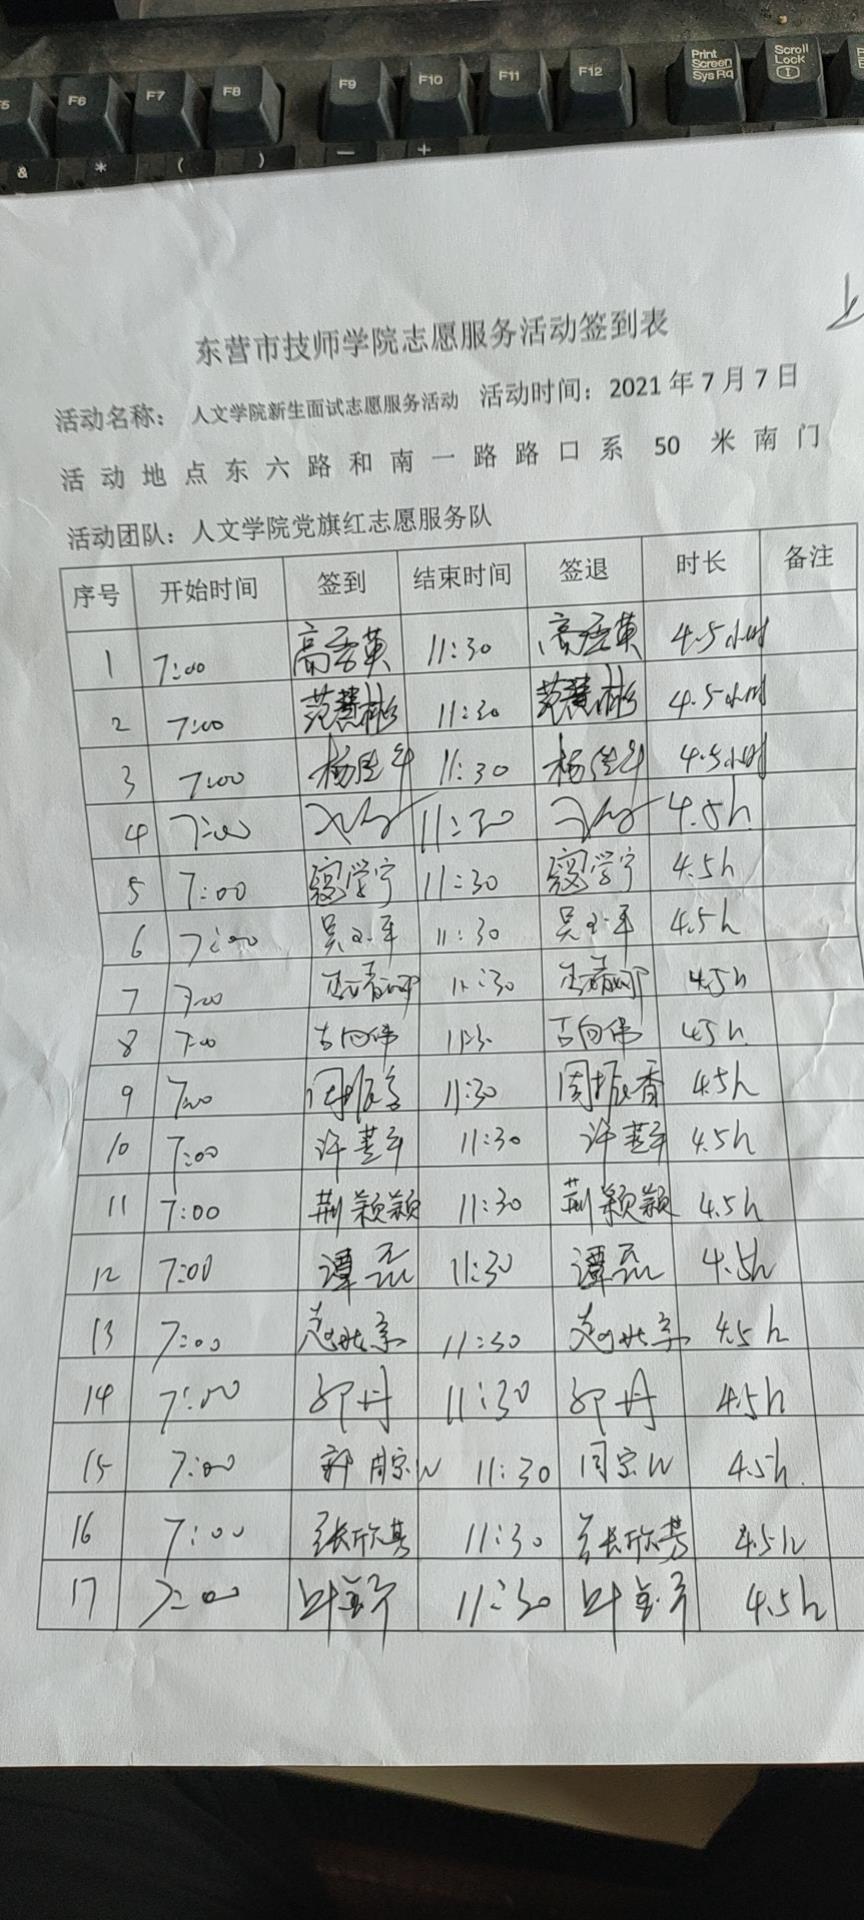 F5 F6 F7 F8 F9 F10 F11 F12 Print Screen SysRq Scroll Lock
& * ( ) — +
东营市技师学院志愿服务活动签到表
活动名称： 人文学院新生面试志愿服务活动 活动时间：2021年7月7日
活动地点东六路和南一路路口系 50 米南门
活动团队：人文学院党旗红志愿服务队
序号 开始时间 签到 结束时间 签退 时长 备注
1 7:00 高秀英 11:30 高秀英 4.5小时
2 7:00 范慧彬 11:30 范慧彬 4.5小时
3 7:00 11:30 4.5小时
4 7:00 11:30 4.5h
5 7:00 寇学宁 11:30 寇学宁 4.5h
6 7:00 11:30 4.5h
7 7:00 11:30 4.5h
8 7:00 吉向伟 11:30 吉向伟 4.5h
9 7:00 周振香 11:30 周振香 4.5h
10 7:00 11:30 4.5h
11 7:00 荆颖颖 11:30 荆颖颖 4.5h
12 7:00 谭磊 11:30 谭磊 4.5h
13 7:00 11:30 4.5h
14 7:00 11:30 4.5h
15 7:00 11:30 4.5h
16 7:00 张欣芳 11:30 张欣芳 4.5h
17 7:00 11:30 4.5h